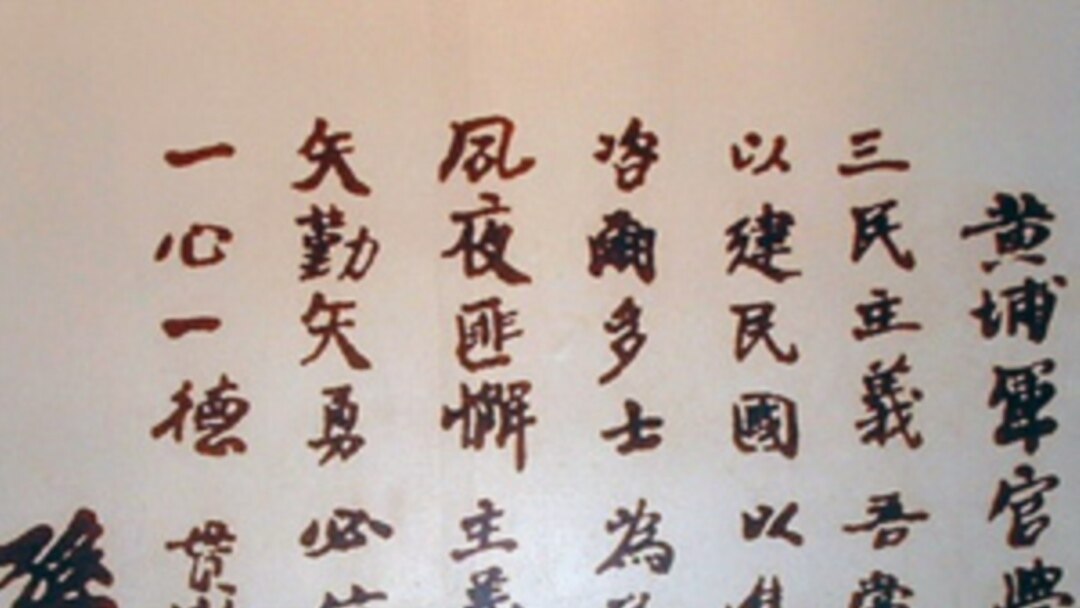 黄埔軍官學
三民主義吾黨
以建民國以進
咨爾多士為
夙夜匪懈主義
矢勤矢勇必信
一心一德貫
孫